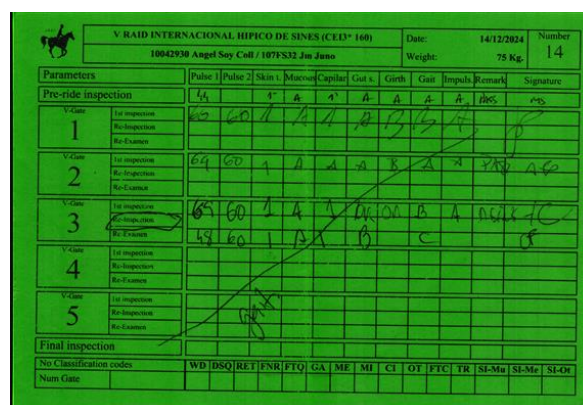 V RAID INTERNACIONAL HIPICO DE SINES (CEI3* 160) Date: 14/12/2024 Number
10042930 Angel Soy Coll / 107FS32 Jm Juno Weight: 75 Kg. 14
Parameters Pulse 1 Pulse 2 Skin t. Mucous Capilar Gut s. Girth Gait Impuls. Remark Signature
Pre-ride inspection 44 1" A 1" A A A A
V-Gate 1st inspection 60 1 A 1 A B B A
1 Re-Inspection
Re-Examen
V-Gate 1st inspection 64 60 1 A A A B A A
2 Re-Inspection
Re-Examen
V-Gate 1st inspection 64 60 1 A 1 B A
3 Re-Inspection
Re-Examen 48 60 1 A 1 B C
V-Gate 1st inspection
4 Re-Inspection
Re-Examen
V-Gate 1st inspection
5 Re-Inspection
Re-Examen
Final inspection
No Classification codes WD DSQ RET FNR FTQ GA ME MI CI OT FTC TR SI-Mu SI-Me SI-Ot
Num Gate